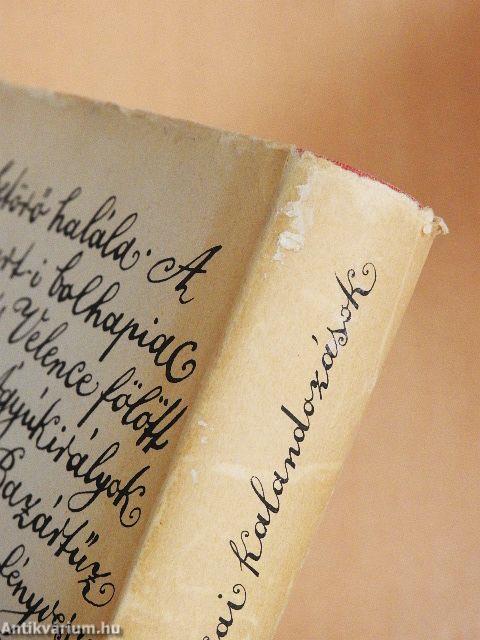 halála · Az
bolhapiac
Velence fölött
Ágyúkirályok
Bazártűz
kalandozások
Antikvárium.hu